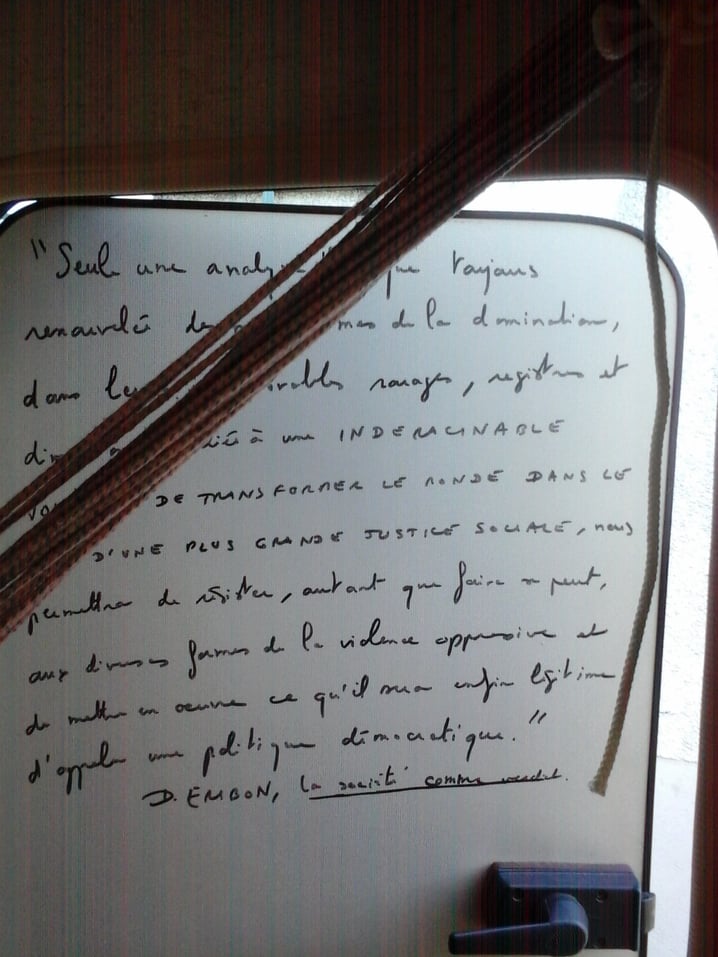 "Seule une analy que toujours
renouvelée de mes de la domination,
dans le rables rouages, registres et
di liée à une INDERACINABLE
vo DE TRANSFORMER LE MONDE DANS LE
D'UNE PLUS GRANDE JUSTICE SOCIALE, nous
permettra de résister, autant que faire se peut,
aux diverses formes de la violence oppressive et
de mettre en oeuvre ce qu'il sera enfin légitime
d'appeler une politique démocratique."
D. EMBON, la société comme verdict.